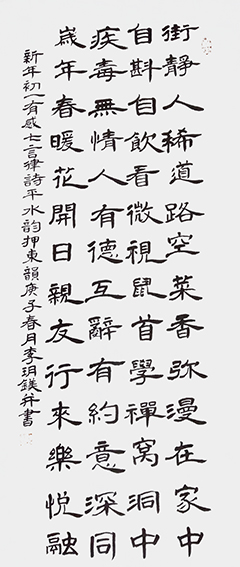 街靜人稀道路空菜香弥漫在家中
自斟自飲看微視鼠首學禪窩洞中
疾毒無情人有德互辭有約意深同
歲年春暖花開日親友行來樂悦融
新年初一有感七言律詩平水韵押東韻庚子春月李玥鎂并書